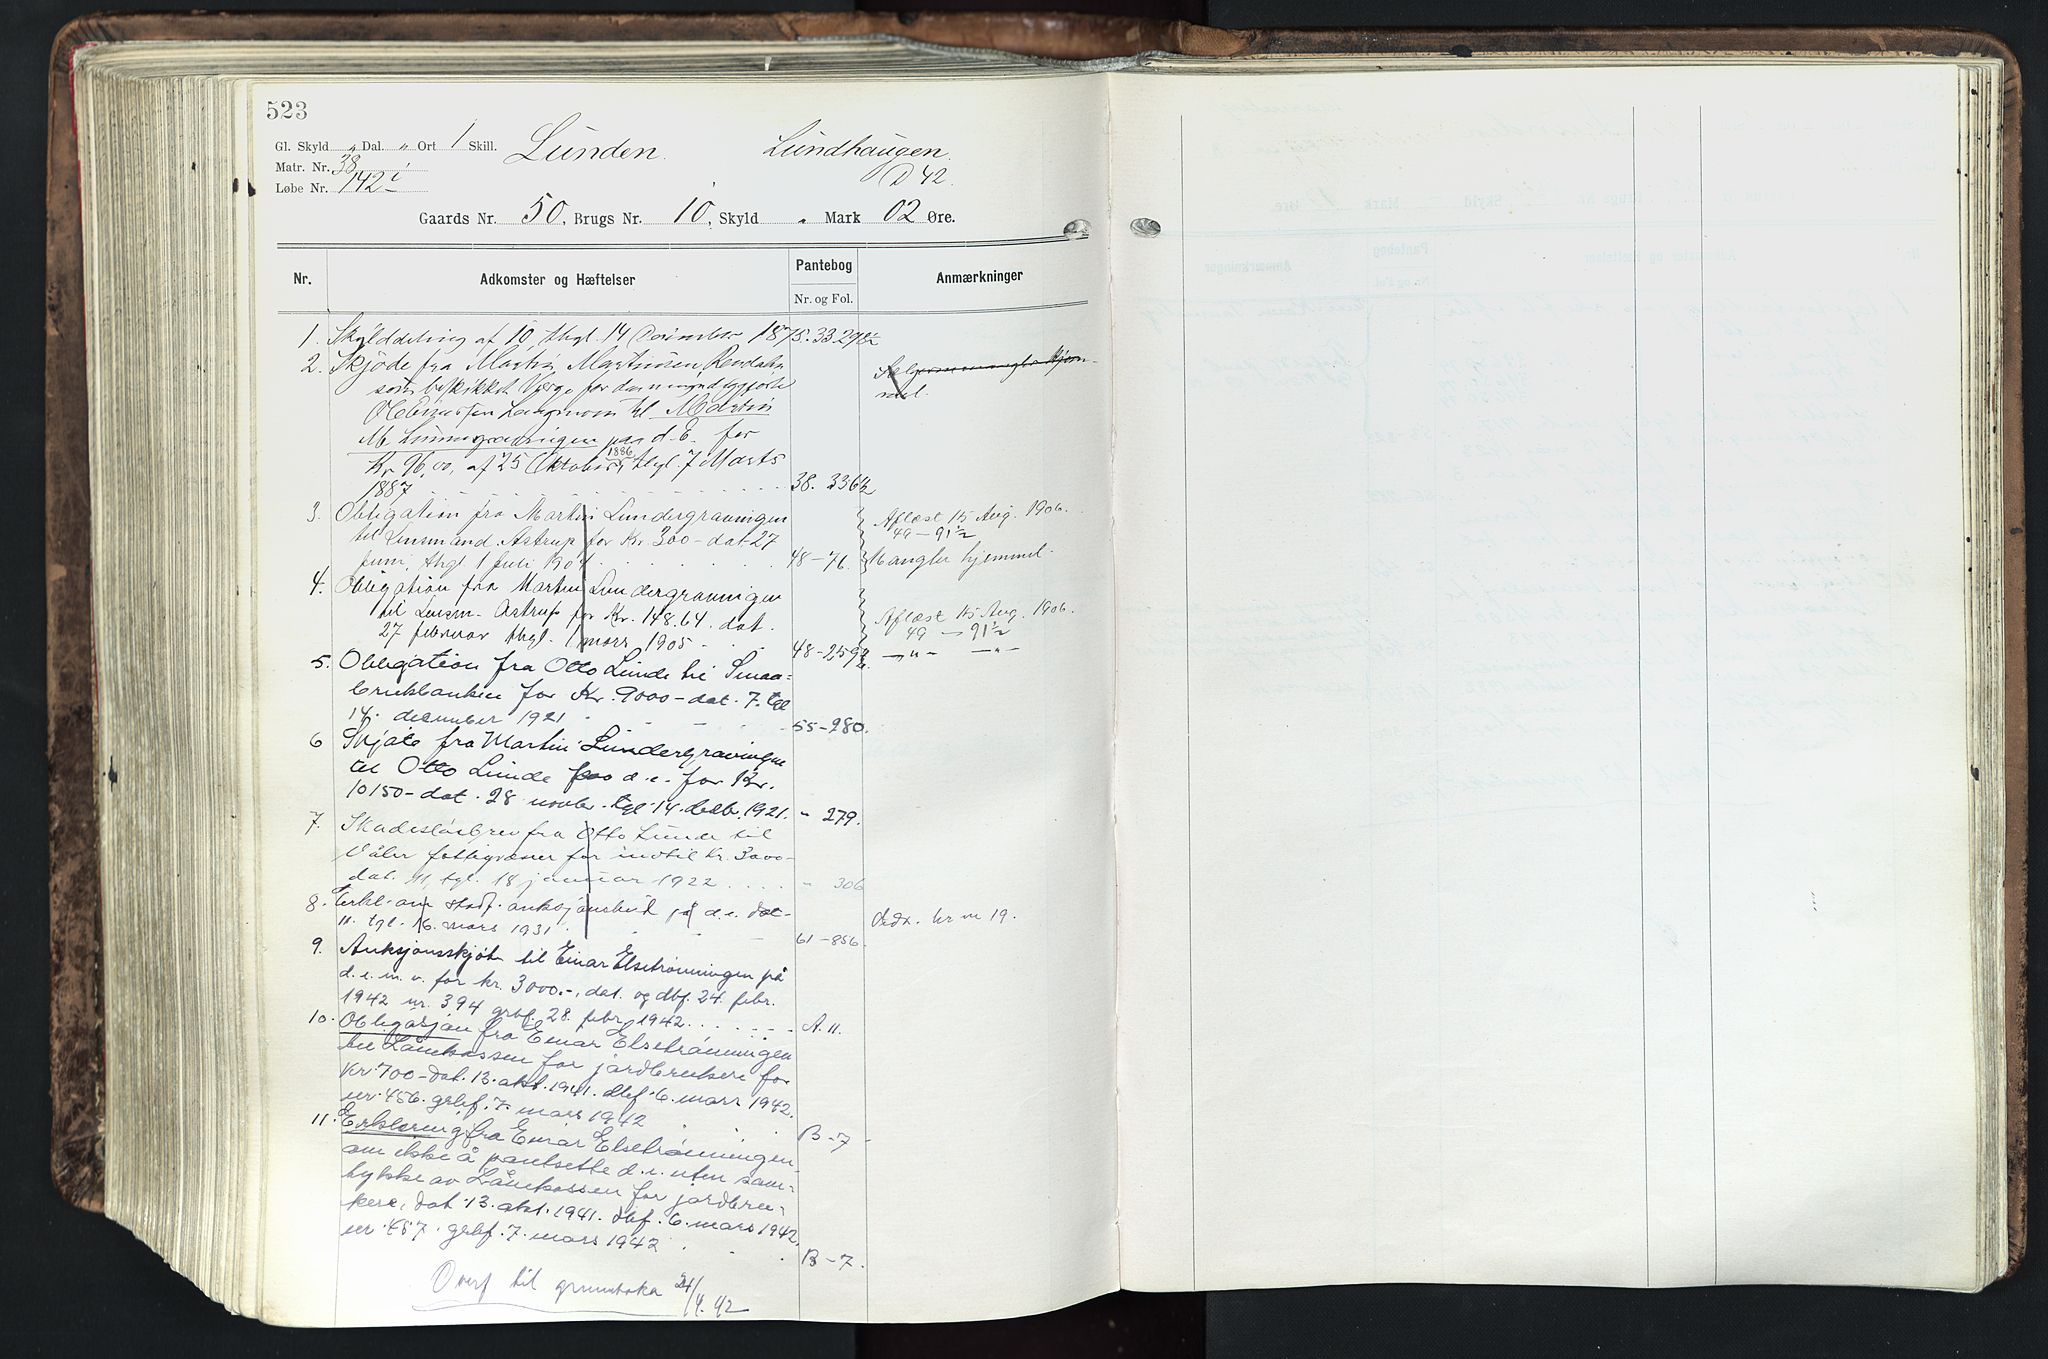 523
Gl. Skyld „ Dal. „ Ort 1 Skill. Lunden. Lundhaugen.
Matr. Nr. 38 D 42.
Løbe Nr. 142 i
Gaards Nr. 50, Brugs Nr. 10, Skyld „ Mark 02 Øre.
Nr. Adkomster og Hæftelser Pantebog Anmærkninger
Nr. og Fol.
1. Skylddeling af 10, thgl. 14 December 1875. 33. 298½
2. Skjøde fra Martin Martinsen
som beskikket Værge for den
til Martin
M. paa d. E. for
Kr 96,00, af 25 Oktober 1886, thgl. 7 Marts
1887 38. 336½
mel.
3. Obligation fra Martin Lundergravningen Aflæst 15 Aug. 1906.
til Lensmand Astrup for Kr 300 – dat. 27 49 – 91½
juni, thgl. 1 juli 1904 48–76. Mangler hjemmel.
4. Obligation fra Martin Lundergravningen
til Lensm. Astrup for Kr. 148.64. dat. Aflæst 15 Aug. 1906.
27 februar thgl. 1 mars 1905 49 – 91½
48–259½ –„– –„–
5. Obligation fra Otto Lunde til Smaa-
brukbanken for Kr. 9000– dat. 7. tgl
14. december 1921 55–280.
6 Skjøte fra Martin Lundergravningen
til Otto Lunde paa d. e. for Kr.
10150– dat. 28 novbr. tgl. 14. decbr. 1921. „ 279.
7. Skadesløsbrev fra Otto Lunde til
Våler fattigvæsen for indtil Kr. 3000–
dat. 11, tgl. 18 januar 1922 „ 306
8. Erkl. om auksjonsbud på d. e. dat
11. tgl. 16. mars 1931. 61–856. 19.
9. Auksjonsskjøte til Einar Elsetrønningen på
d. e. m. v. for kr. 3000.–, dat. og dbf. 24. febr.
1942 nr. 394 grbf. 28. febr. 1942 A. 11.
10. Obligasjon fra Einar Elsetrønningen
til Lånekassen for jordbrukere for
Kr. 700– dat. 13. okt. 1941. dbf. 6. mars 1942.
nr. 456. grbf. 7. mars 1942 B–7
11. Erklæring fra Einar Elsetrønningen
om ikke å pantsette d. e. uten sam-
tykke av Lånekassen for jordbru-
kere, dat. 13. okt. 1941. dbf. 6. mars 1942.
nr. 457. grbf. 7. mars 1942 B–7.
Overf til grunnboka 21/4. 42